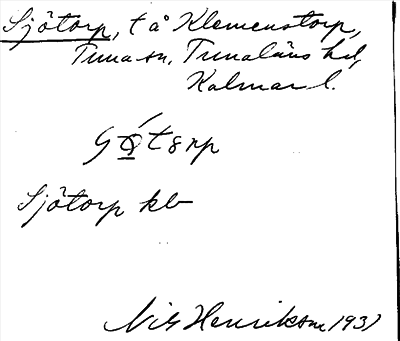 Sjötorp, t å Klemenstorp,
Tuna sn, Tunaläns hd,
Kalmar l.
Sjötorp kb
Nils Henriksson 1937